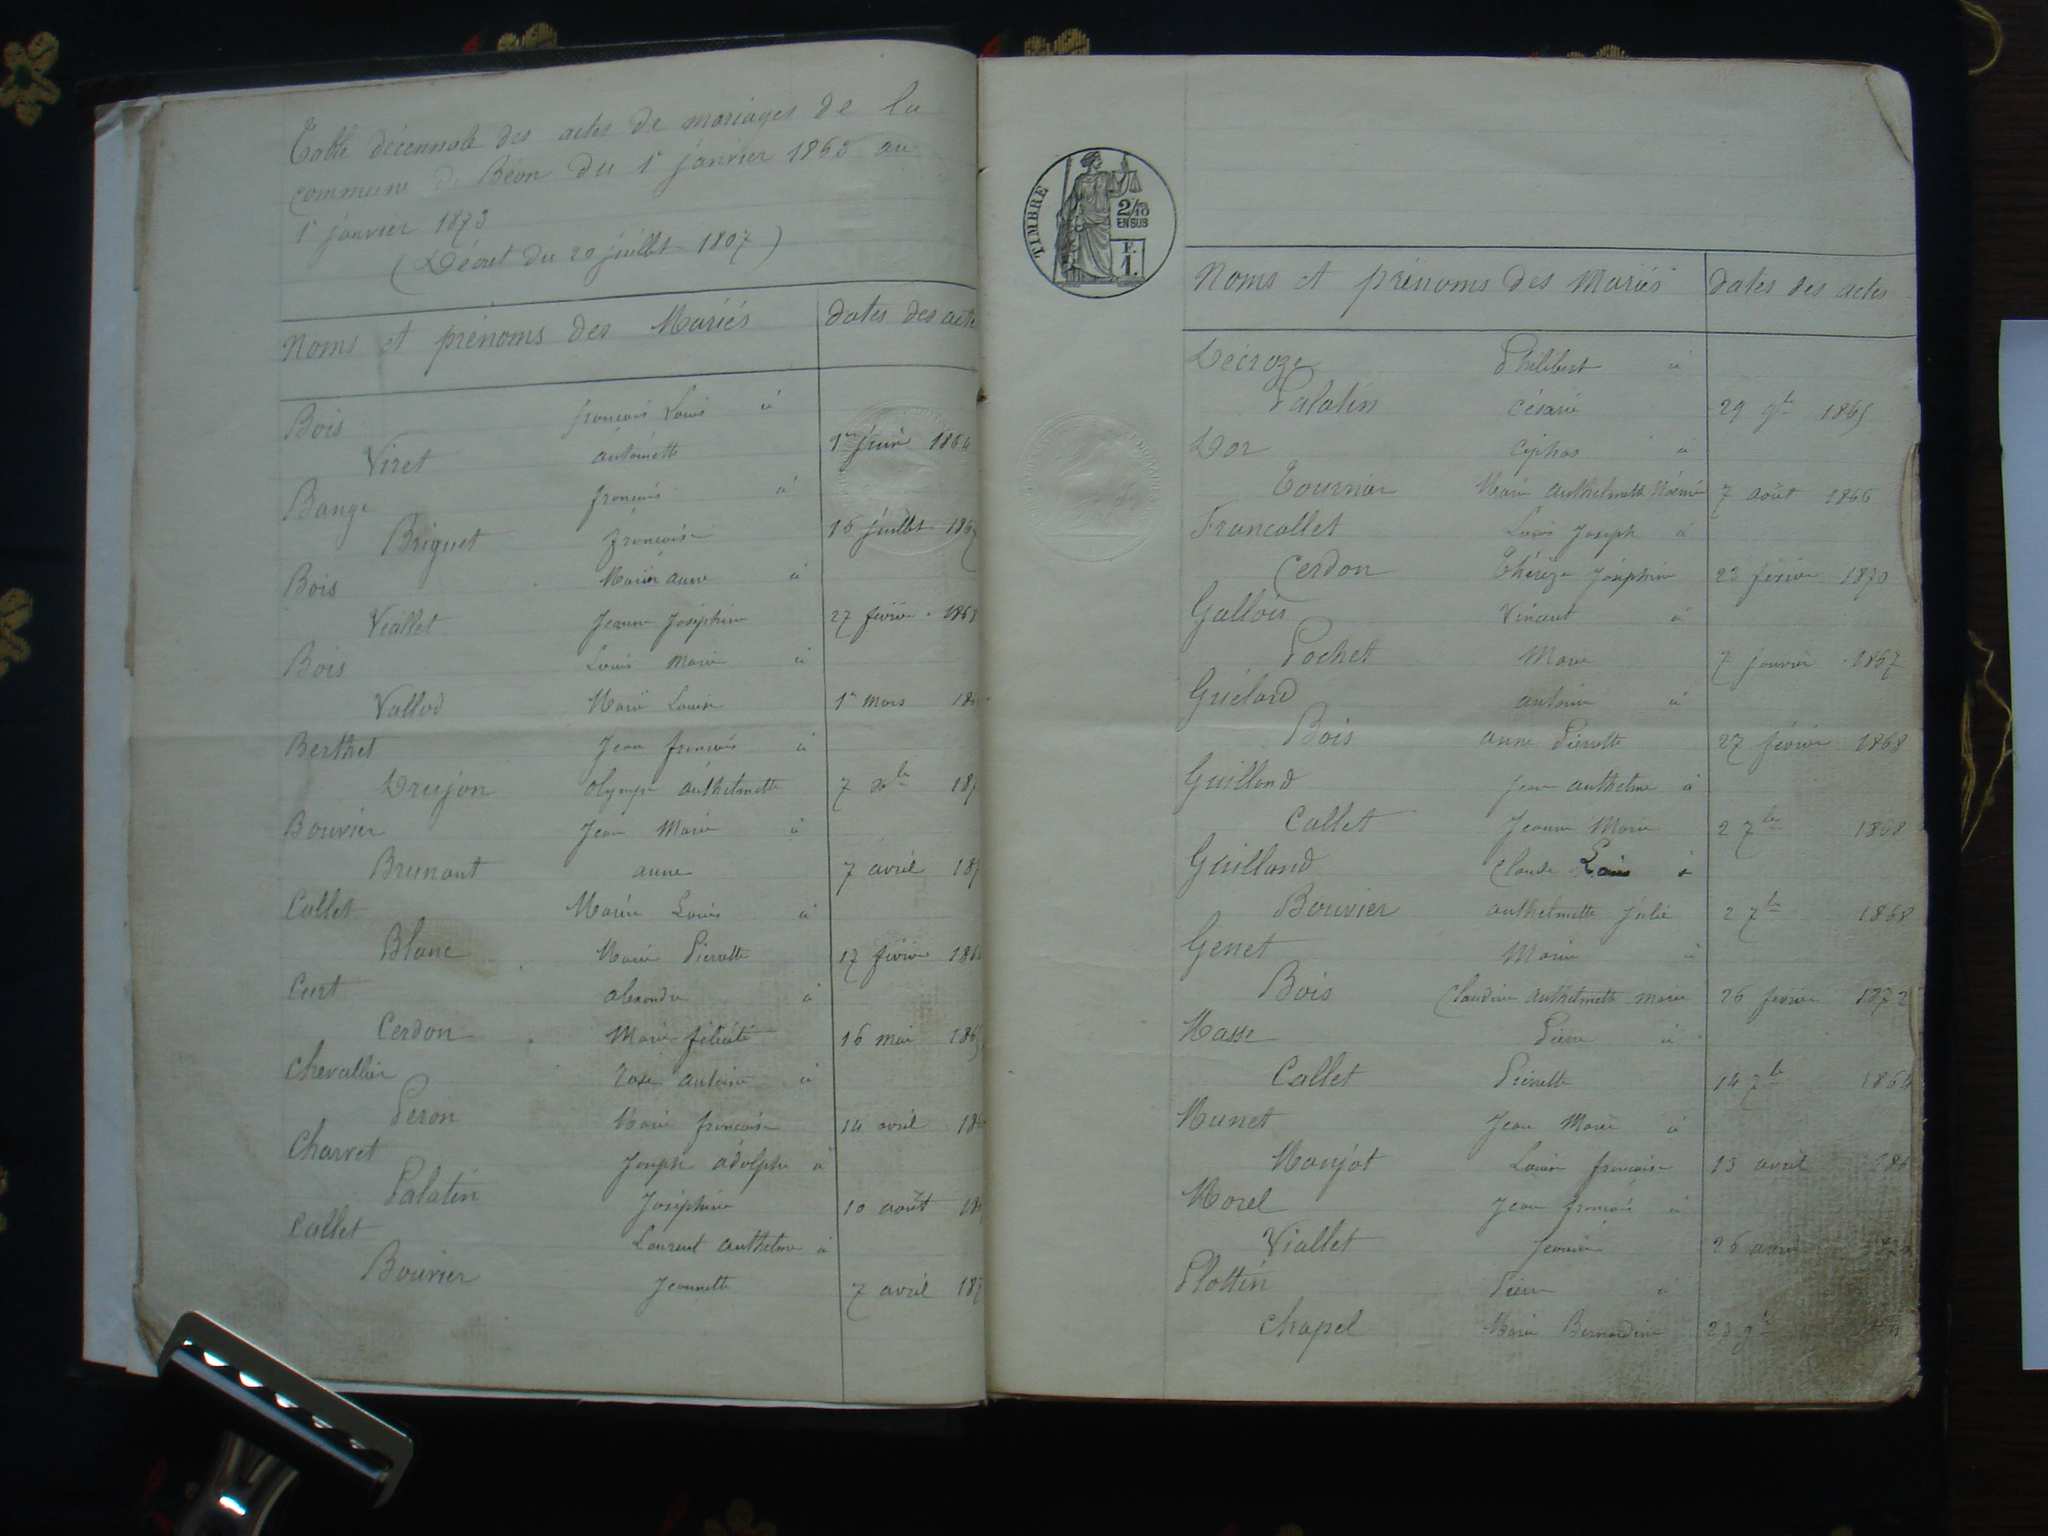 Table décennale des actes de mariages de la
commune de Béon du 1er janvier 1863 au
1er janvier 1873
(Décret du 20 juillet 1807)
Noms et prénoms des Mariés dates des acte
Bois françois Louis à
Viret antoinette 1er juin 1864
Bange françois à
Briguet françoise 16 juillet 186
Bois Marin anne à
Viallet Jeanne Joséphine 27 février 1868
Bois Louis Marie à
Vallod Marie Louise 1er mars 18
Berthet Jean françois à
Drujon olympe anthelmette 7 Xbre 187
Bouvier Jean Marie à
Brunant anne 7 avril 187
Callet Marin Louis à
Blanc Marie Pierrette 17 février 186
Curt alexandre à
Cerdon Marie félicité 16 mai 186
Chevallier antoine à
Peron Marie françoise 14 avril 18
Charvet Joseph adolphe à
Palatin Joséphine 10 août 18
Callet Laurent anthelme à
Bouvier Jeannette 7 avril 187
TIMBRE
2/10
EN SUS
F.
1.
Noms et prénoms des Mariés dates des actes
Décroze Philibert à
Palatin Césarie 29 9bre 1865
Dor Ciphas à
Tournier Marie anthelmette Noémie 7 août 1866
Francallet Louis Joseph à
Cerdon Thérèze Joséphine 23 février 1870
Gallois Vincent à
Pochet Marie 7 janvier 1867
Guélard antoine à
Bois anne Pierrette 27 février 1868
Guilland Jean anthelme à
Callet Jeanne Marie 2 7bre 1868
Guilland Claude Louis à
Bouvier anthelmette Julie 2 7bre 1868
Genet Marin à
Bois Claudine anthelmette marie 26 février 1872
Masse Pierre à
Callet Pierrette 14 7bre 1864
Munet Jean Marie à
Monjot Louise françoise 15 avril 186
Morel Jean françois à
Viallet 26
Plottin Pierre à
Chapel Marie Bernardine 23 9bre